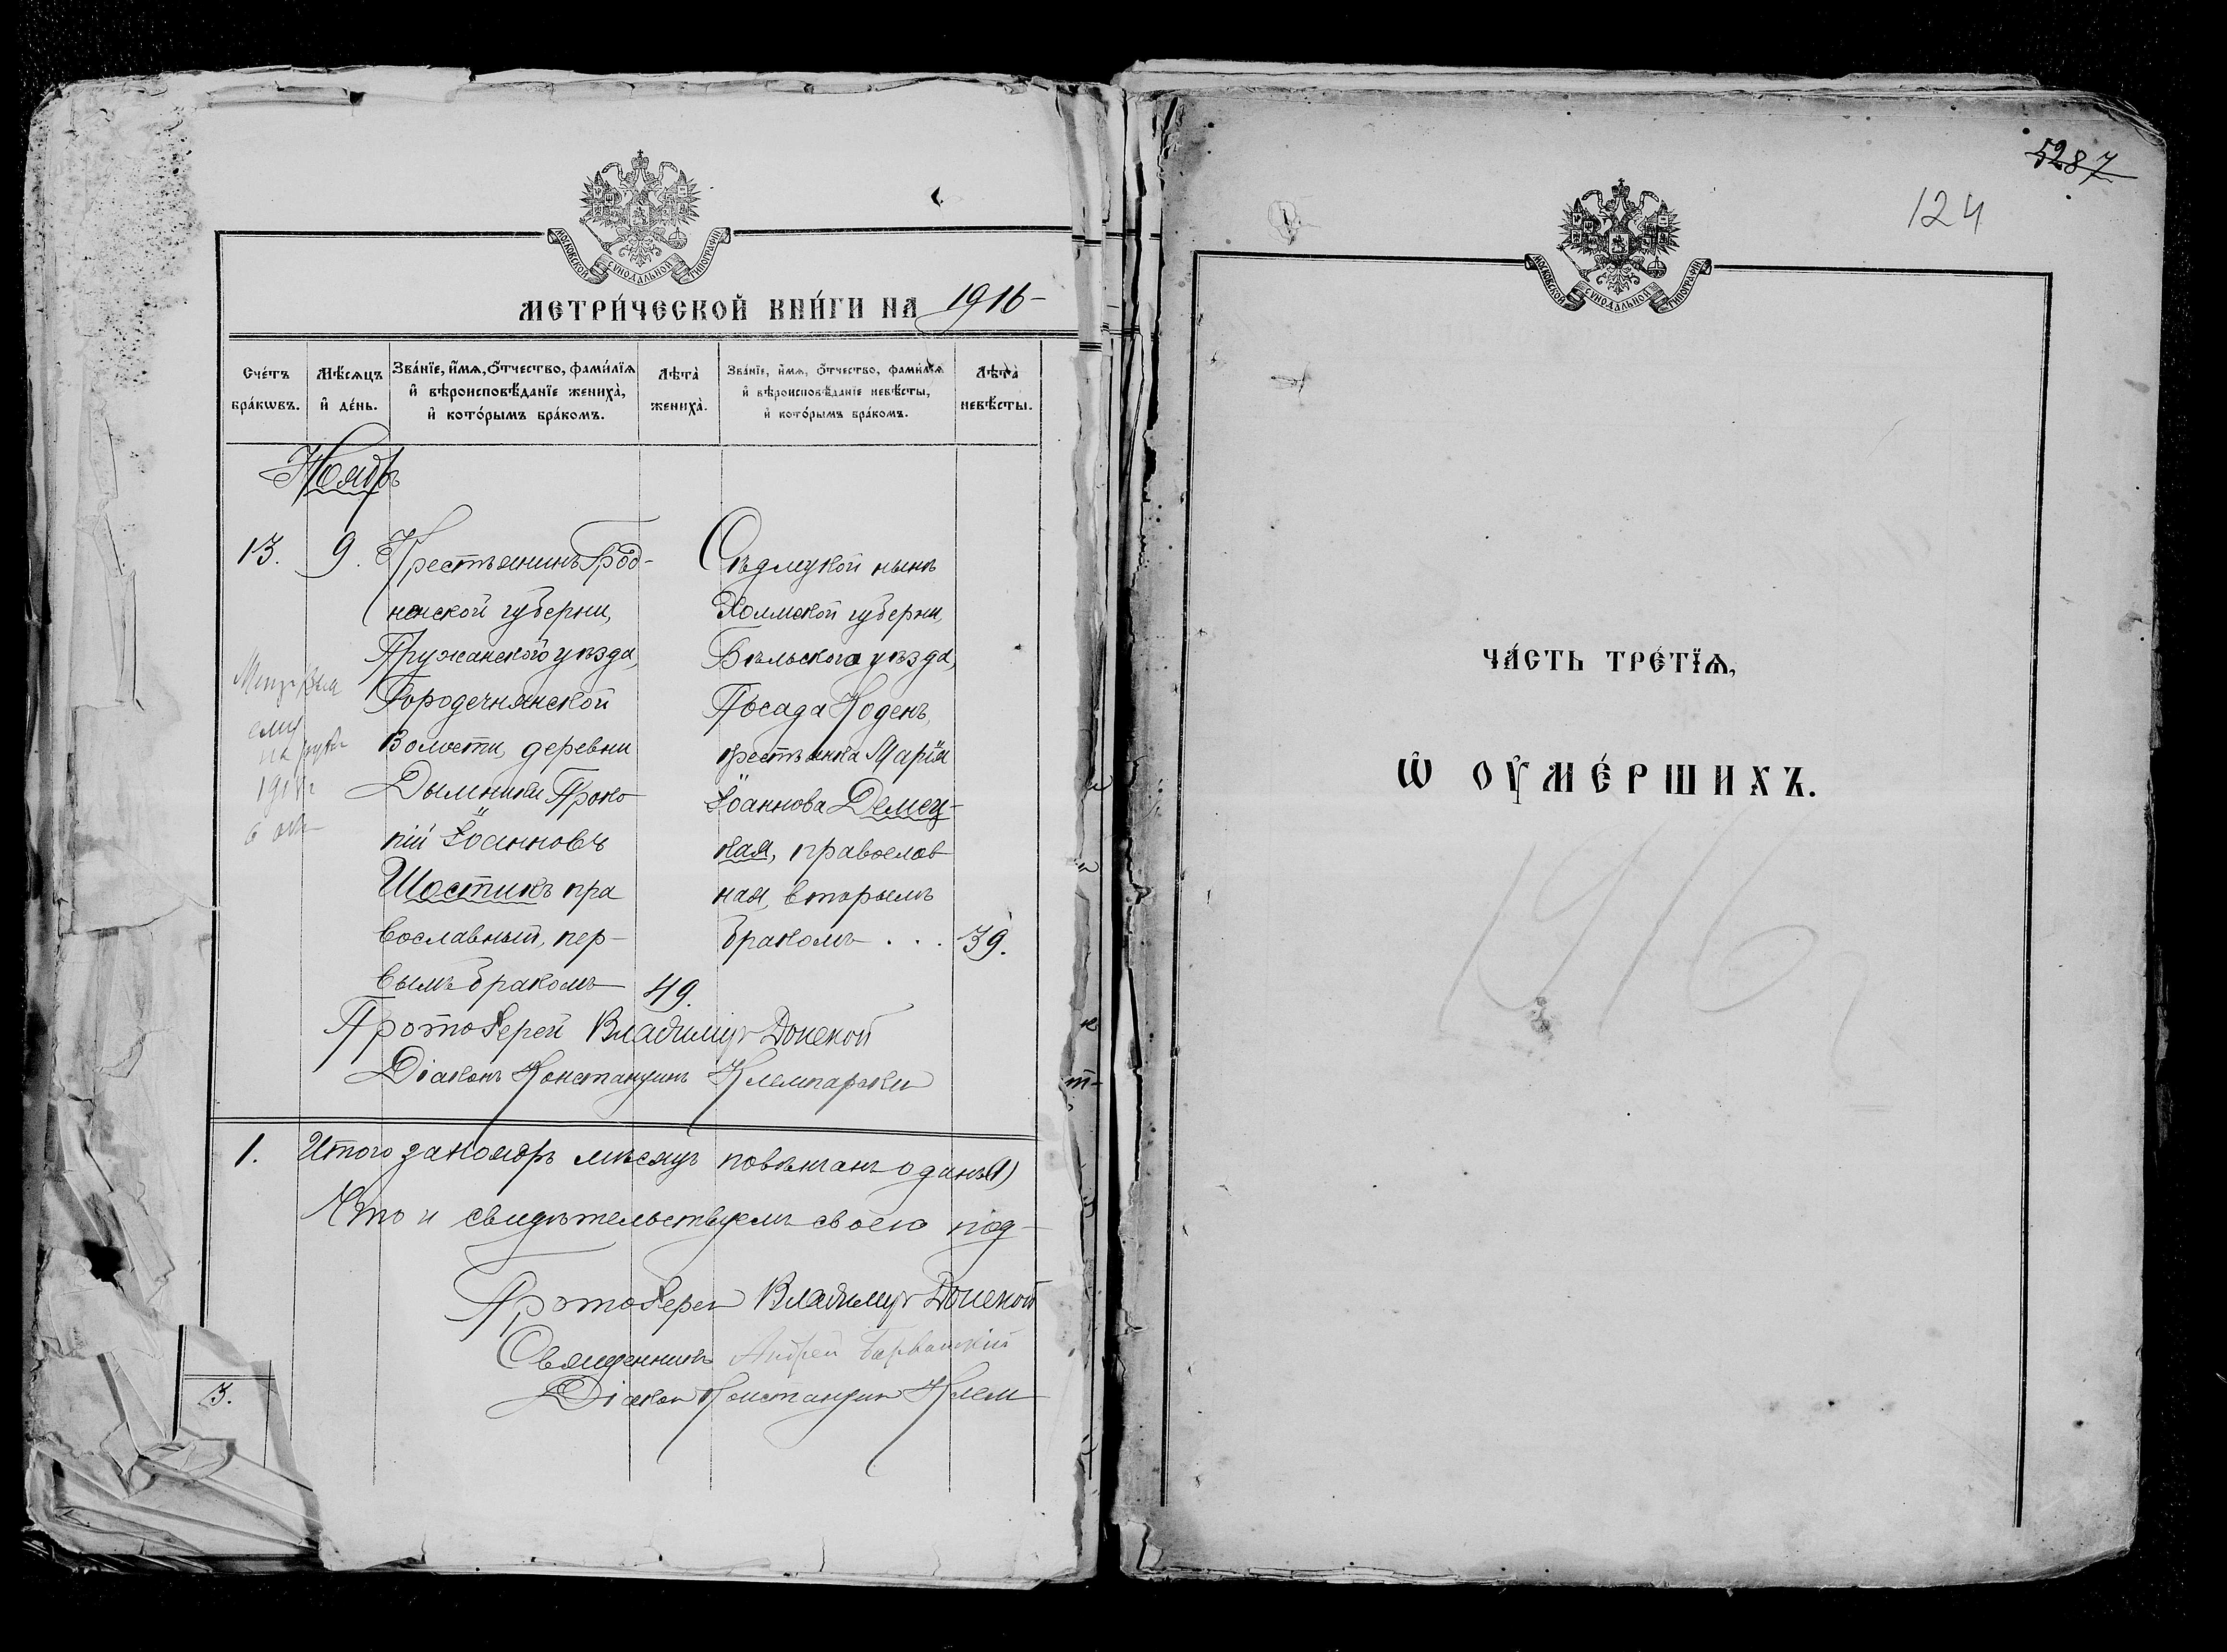 МОСКОВСКОЙ СѴНОДАЛЬНОЙ ТИПОГРАФІИ
МЕТРИ́ЧЕСКОЙ КНИ́ГИ НА 1916
Сче́тъ бра́кѡвъ.
Мѣ́сѧцъ и҆ де́нь.
Зва́нїе, и҆́мѧ, ѻ҆́тчество, фами́лїѧ
и҆ вѣроисповѣ́данїе жениха̀,
и҆ кото́рымъ бра́комъ.
Лѣта̀ жениха̀.
Зва́нїе, и҆́мѧ, ѻ҆́тчество, фами́лїѧ
и҆ вѣроисповѣ́данїе невѣ́сты,
и҆ кото́рымъ бра́комъ.
Лѣта̀ невѣ́сты.
Ноябрь
13. 9.
Крестьянинъ Грод-
ненской губерни,
Пружанского уѣзда,
Городечнянской
Волости, деревни
Дымники Проко
пій Іоанновъ
Шостикъ пра
вославный, пер-
вымъ бракомъ 49.
Сѣдлецкой нынѣ
Холмской губерни,
Бѣльского уѣзда,
Посада Кодень,
крестьянка Марія
Іоаннова Демец-
кая, православ
ная, вторымъ
бракомъ . . . 39.
ему
на руки
Протоіерей Владиміръ Донской
Діаконъ Константинъ
1. Итого за ноябрь мѣсяцъ повѣнчанъ одинъ (1)
Что и свидѣтельствуемъ своею под-
Протоіерей Владиміръ Донской
Священникъ Андрей
Діаконъ Константинъ Клем
3.
5287
124
МОСКОВСКОЙ СѴНОДАЛЬНОЙ ТИПОГРАФІИ
ЧА́СТЬ ТРЕ́ТЇѦ,
Ѡ҆ ОУ҆МЕ́РШИХЪ.
1916